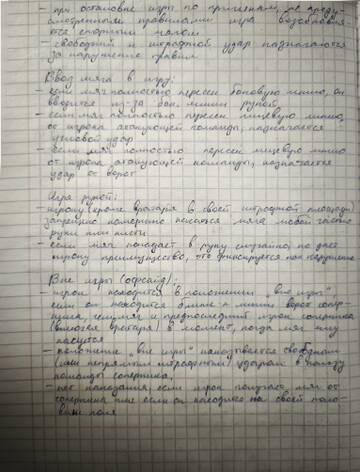 - при остановке игры по причинам, не преду-
смотренным правилами игра возобновля-
ется спорным мячом
- свободный и штрафной удар назначаются
за нарушение правил
Ввод мяча в игру:
- если мяч полностью пересек боковую линию, он
вводится из-за бок. линии рукой
- если мяч полностью пересек лицевую линию,
от игрока атакующей команды, назначается
угловой удар
- если мяч полностью пересек лицевую линию
от игрока атакующей команды, назначается
удар от ворот
Игра рукой:
- игроку (кроме вратаря в своей штрафной площади)
запрещено намеренно касаться мяча любой частью
руки или кисти
- если мяч попадает в руку случайно, не дает
игроку преимущество, это фиксируется как нарушение
Вне игры (офсайд):
- игрок находится в положении "вне игры",
если он находится ближе к линии ворот сопер-
ника, чем мяч и предпоследний игрок соперника
(включая вратаря) в момент, когда мяч ему
пасуется
- положение "вне игры" наказывается свободным
(или непрямым штрафным) ударом в пользу
команды соперника.
- нет наказания, если игрок получает мяч от
соперника или если он находится на своей поло-
вине поля